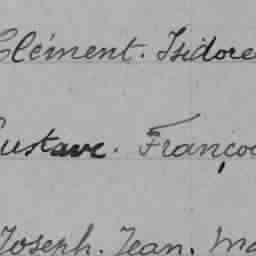 Clément. Isidore
Gustave. Françoi
Joseph. Jean. Ma